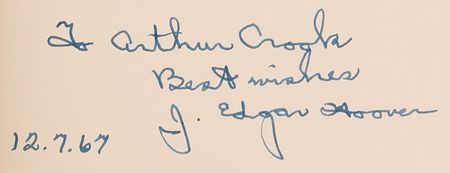 To Arthur
Best wishes
J. Edgar Hoover
12.7.67